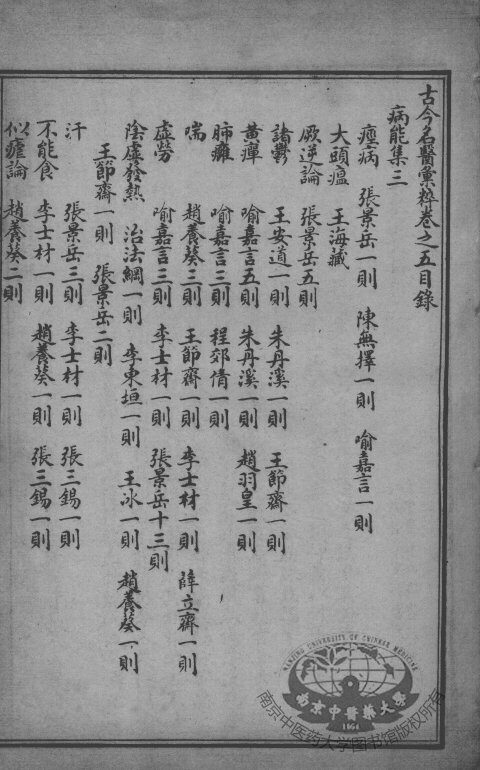 古今名醫彙粹卷之五目錄
病能集三
痙病 張景岳一則 陳無擇一則 喻嘉言一則
大頭瘟 王海藏
厥逆論 張景岳五則
諸鬱 王安道一則 朱丹溪一則 王節齋一則
黃癉 喻嘉言五則 朱丹溪一則 趙羽皇一則
肺癰 喻嘉言三則 程郊倩一則
喘 趙養葵三則 王節齋一則 李士材一則 薛立齋一則
虛勞 喻嘉言三則 李士材一則 張景岳十三則
陰虛發熱 治法綱一則 李東垣一則 王冰一則 趙養葵一則
王節齋一則 張景岳二則
汗 張景岳三則 李士材一則 張三錫一則
不能食 李士材一則 趙養葵一則 張三錫一則
似瘧論 趙養葵二則
NANJING UNIVERSITY OF CHINESE MEDICINE
南京中醫藥大學
1954
南京中医药大学图书馆版权所有